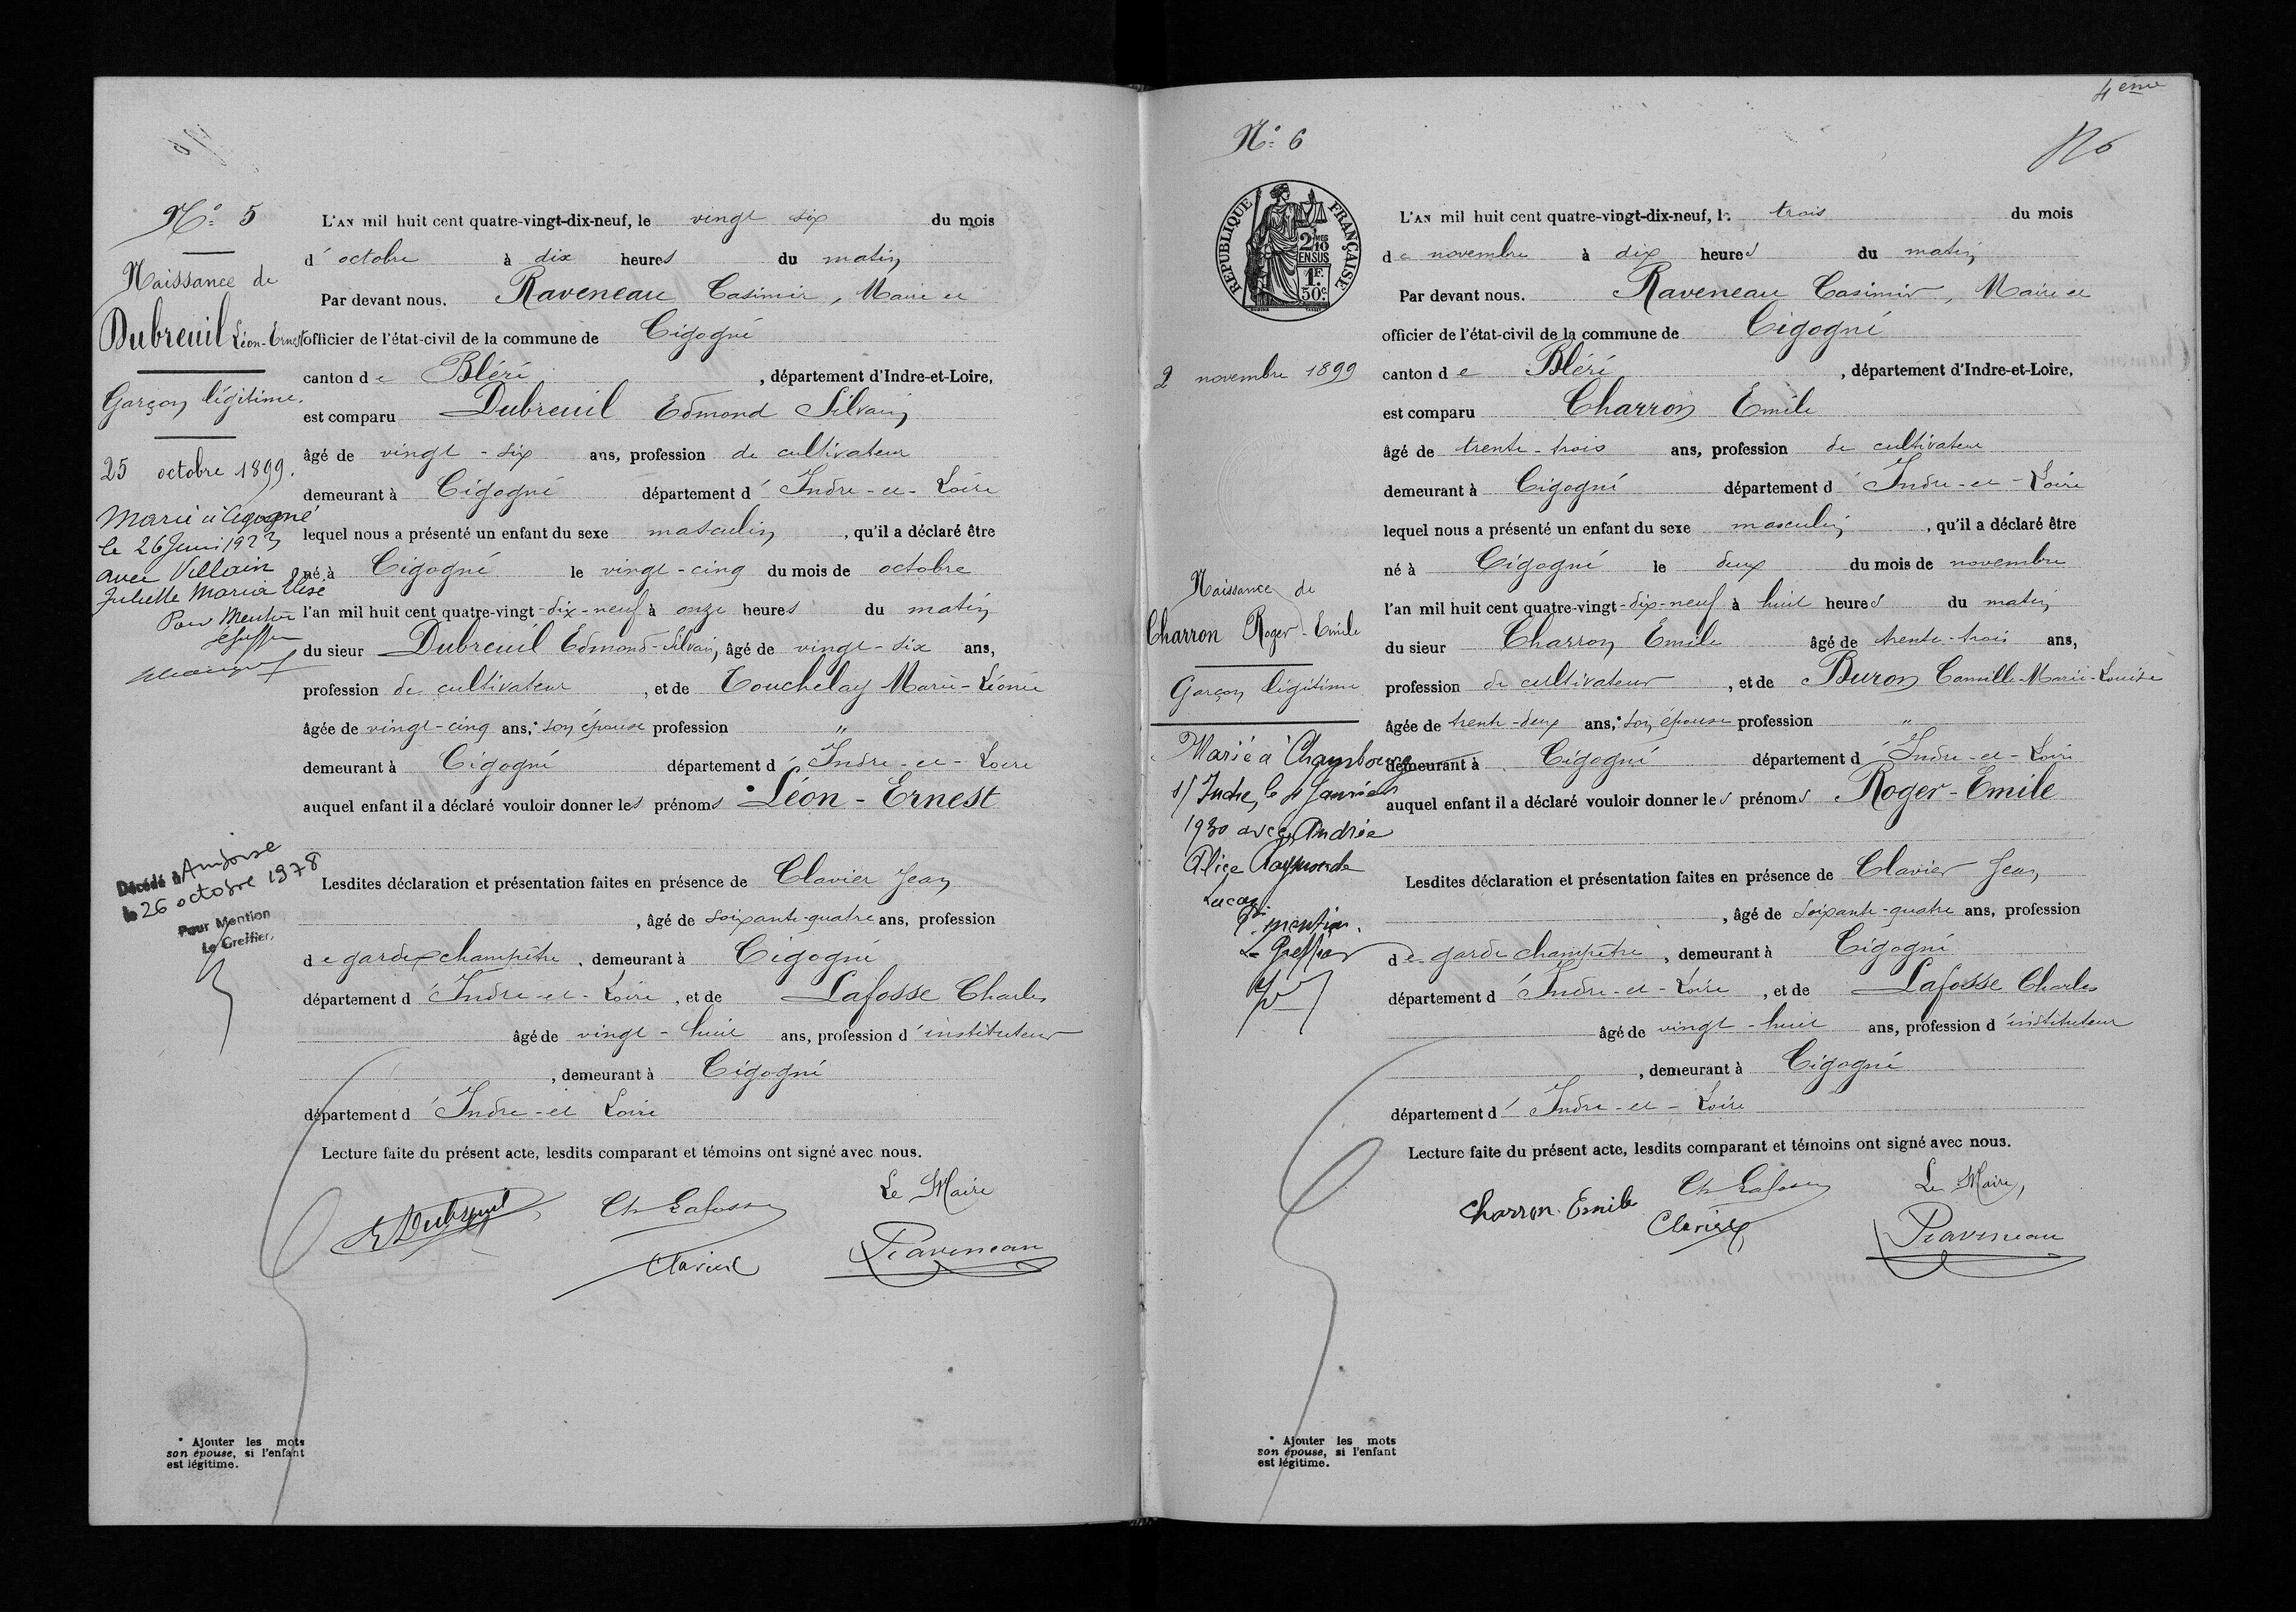 N° 5
Naissance de
Dubreuil Léon-Ernest
Garçon légitime.
25 octobre 1899.
Marié à Cigogné
le 26 Juin 1923
avec Villain
Juliette Maria Elise
Pour Mention
Décédé à Amboise
le 26 octobre 1978
Pour Mention
Le Greffier,
L'AN mil huit cent quatre-vingt-dix-neuf, le vingt six du mois
d'octobre à dix heures du matin
Par devant nous. Raveneau Casimir, Maire et
officier de l'état-civil de la commune de Cigogné
canton de Bléré, département d'Indre-et-Loire,
est comparu Dubreuil Edmond Silvain
âgé de vingt-six ans, profession de cultivateur
demeurant à Cigogné département d'Indre-et-Loire
lequel nous a présenté un enfant du sexe masculin, qu'il a déclaré être
né à Cigogné le vingt-cinq du mois de octobre
l'an mil huit cent quatre-vingt-dix-neuf à onze heures du matin
du sieur Dubreuil Edmond-Silvain, âgé de vingt-six ans,
profession de cultivateur, et de Touchelay Marie-Léonie
âgée de vingt-cinq ans,* son épouse profession "
demeurant à Cigogné département d'Indre-et-Loire
auquel enfant il a déclaré vouloir donner les prénoms Léon-Ernest
Lesdites déclaration et présentation faites en présence de Clavier Jean
, âgé de soixante-quatre ans, profession
de garde champêtre, demeurant à Cigogné
département d'Indre-et-Loire, et de Lafosse Charles
âgé de vingt-huit ans, profession d'instituteur
, demeurant à Cigogné
département d'Indre-et Loire
Lecture faite du présent acte, lesdits comparant et témoins ont signé avec nous.
Le Maire
E Dubreuil Ch Lafosse
Clavier Raveneau
* Ajouter les mots
son épouse, si l'enfant
est légitime.
4ème
N° 6
RÉPUBLIQUE FRANÇAISE
2/10 EN SUS
1F. 50c.
2 novembre 1899
Naissance de
Charron Roger-Emile
Garçon légitime
Marié à Chambourg
s/ Indre, le 4 Janvier
1930 avec Andrée
Alice Raymonde
Lucas
Pr mention.
Le Greffier
L'AN mil huit cent quatre-vingt-dix-neuf, le trois du mois
de novembre à dix heures du matin
Par devant nous. Raveneau Casimir, Maire et
officier de l'état-civil de la commune de Cigogné
canton de Bléré, département d'Indre-et-Loire,
est comparu Charron Emile
âgé de trente-trois ans, profession de cultivateur
demeurant à Cigogné département d'Indre-et-Loire
lequel nous a présenté un enfant du sexe masculin, qu'il a déclaré être
né à Cigogné le deux du mois de novembre
l'an mil huit cent quatre-vingt-dix-neuf à huit heures du matin
du sieur Charron Emile âgé de trente-trois ans,
profession de cultivateur, et de Buron Camille-Marie-Louise
âgée de trente-deux ans,* son épouse profession "
demeurant à Cigogné département d'Indre-et-Loire
auquel enfant il a déclaré vouloir donner les prénoms Roger-Emile
Lesdites déclaration et présentation faites en présence de Clavier Jean
, âgé de soixante-quatre ans, profession
de garde champêtre, demeurant à Cigogné
département d'Indre-et-Loire, et de Lafosse Charles
âgé de vingt-huit ans, profession d'instituteur
, demeurant à Cigogné
département d'Indre-et-Loire
Lecture faite du présent acte, lesdits comparant et témoins ont signé avec nous.
Ch Lafosse Le Maire,
Charron Emile Clavier Raveneau
* Ajouter les mots
son épouse, si l'enfant
est légitime.